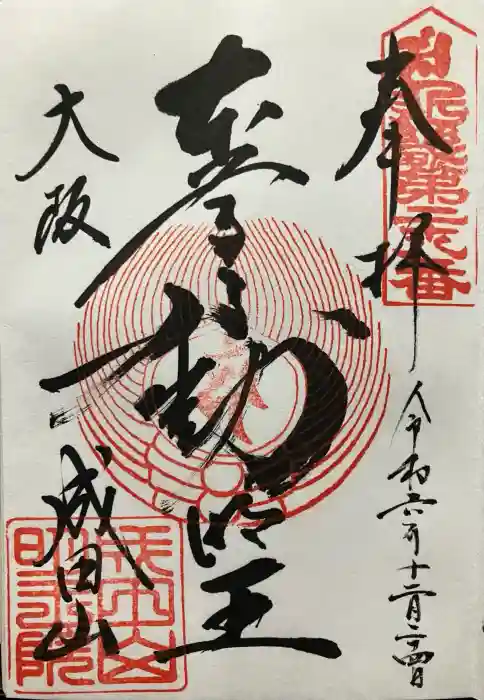 奉拝
令和六年十二月二十四日
不動明王
大阪
成田山
成田山
明王院